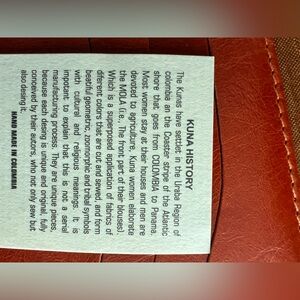 KUNA HISTORY
The Kunas have settled in the Uraba Region of
colombia an the coaster stripe of the Atlantic
shore that goes from COLOMBIA to Panama.
Most women stay at their houses and men are
devoted to agriculture. Kuna women elaborate
the MOLA (i.e.. The front part of their blouses).
Which is a superposed application of fabrics of
different colors that are cut and sewed and form
beatiful geometric, zoomorphic and tribal symbols
with cultural and religious meanings. It is
important to explain that this is not a serial
manufacturing process. They are unique pieces,
because each desing is unique and original, fully
conceived by their autors, who not only sew but
also desing it.
HAND MADE IN COLOMBIA